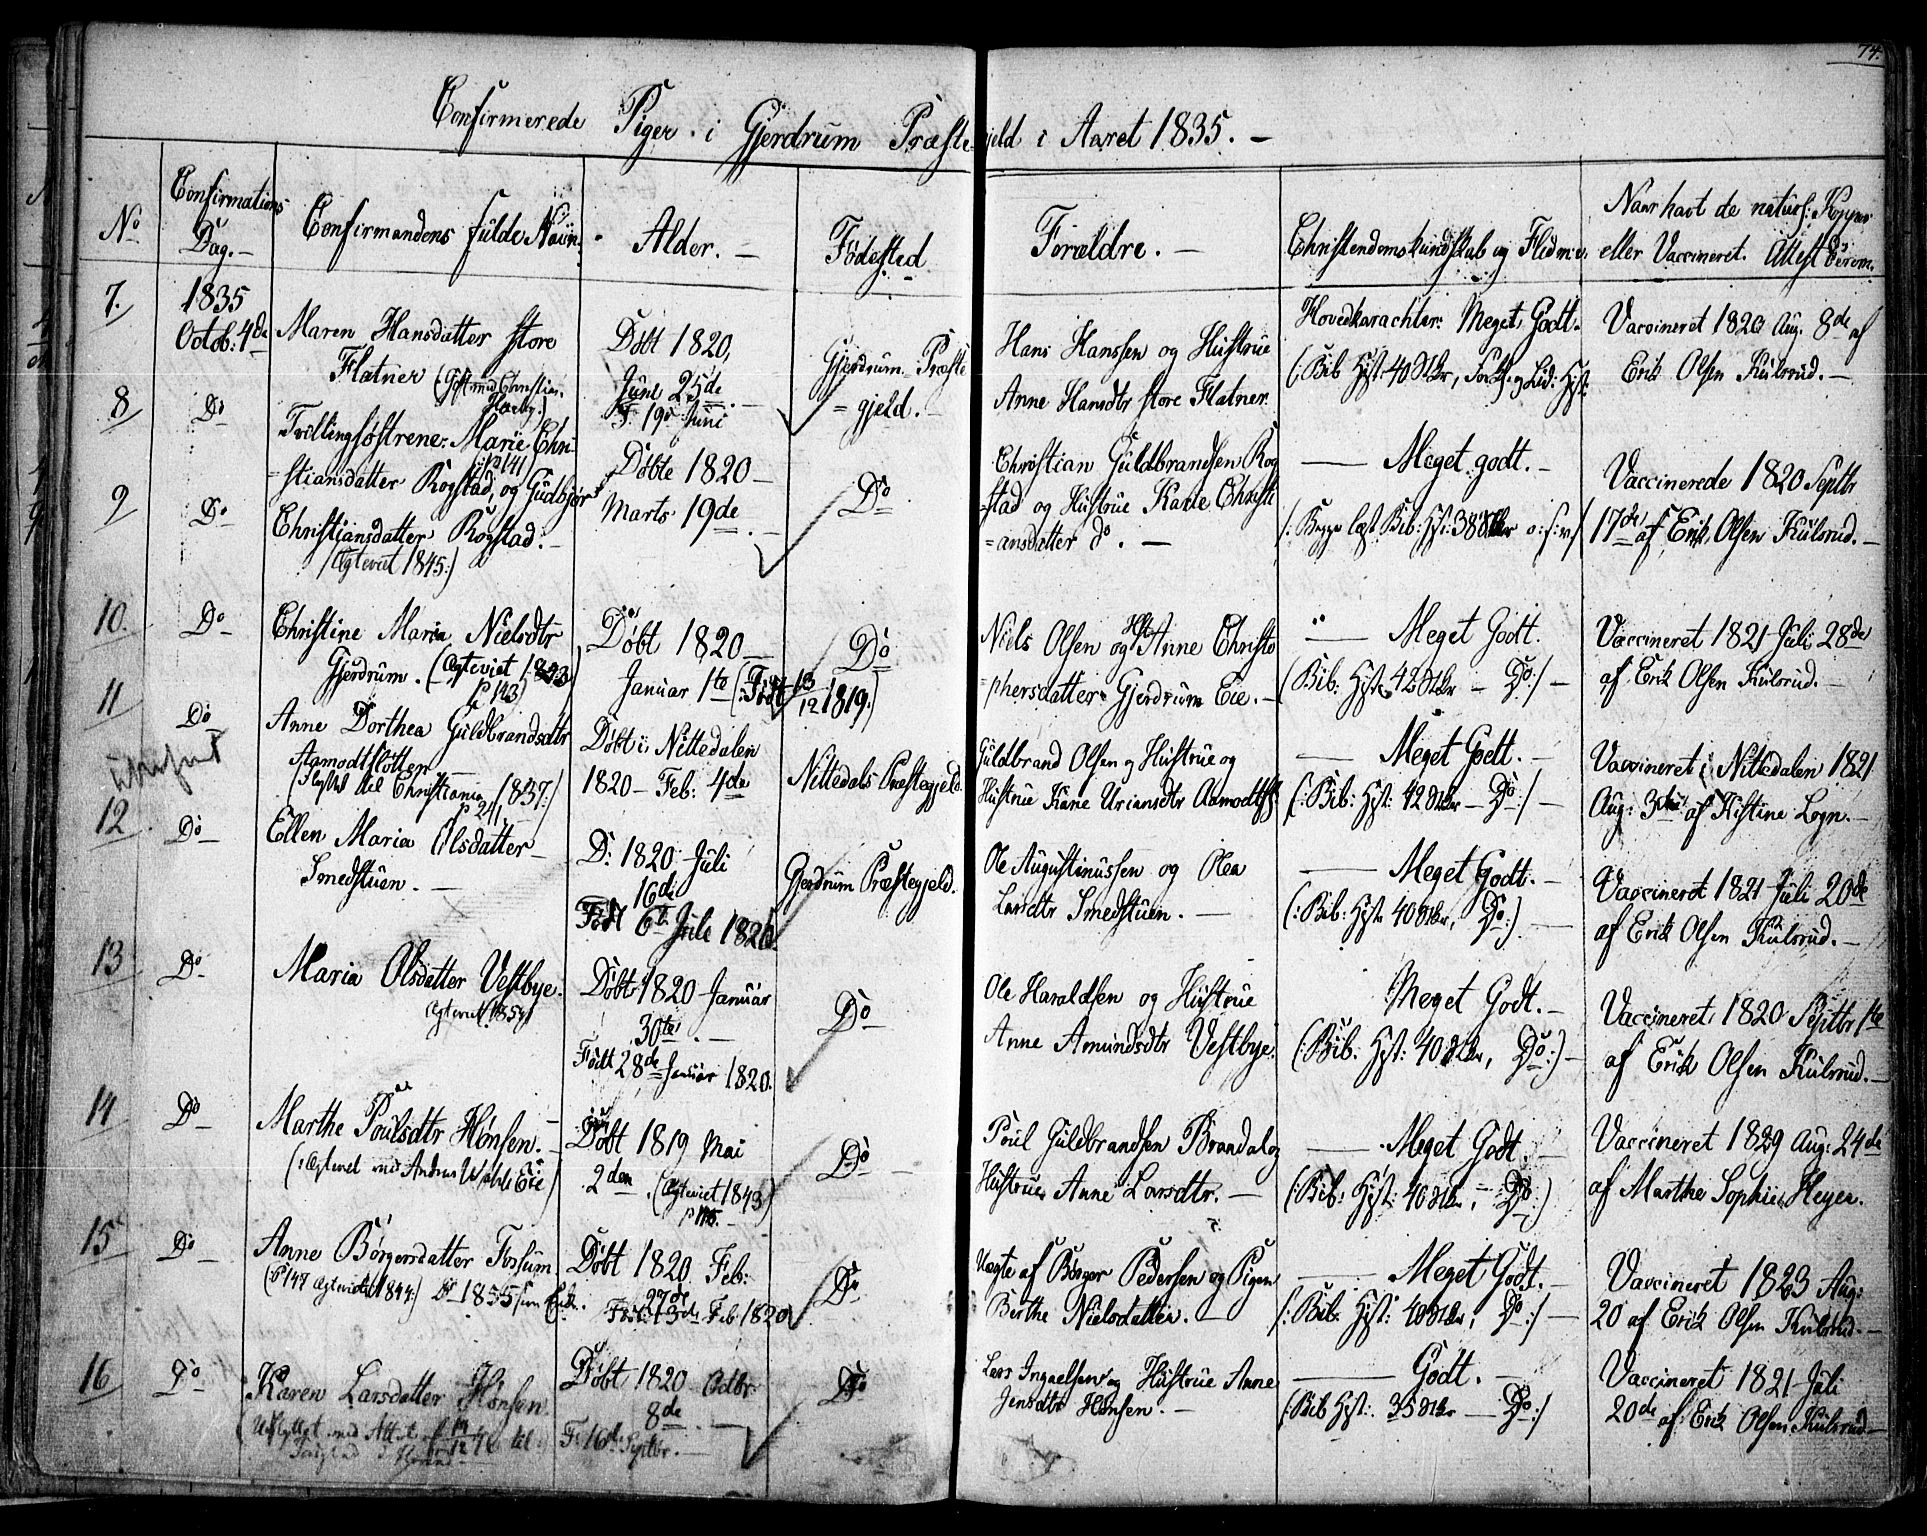 74.
Confirmerede Piger i Gjerdrum Præstegjeld i Aaret 1835. —
No
Confirmations Dag. —
Confirmandens fulde Navn.
Alder. —
Fødested
Forældre. —
Christendomskundskab og Flid
Naar havt de naturl: Kopper
eller Vaccineret. Attest derom.
7.
1835
Octob: 4de
Maren Hansdatter store
Flatner (Gift med Christian
Døbt 1820,
Juni 25de
F. 19de Juni
Gjerdrum Præste
= gjeld. —
Hans Hanssen og Hustrue
Anne Hansdtr store Flatner.
Hovedkarachter: Meget Godt.
(: Bib. Hist: 40 Stkr,
Vaccineret 1820 Aug: 8de af
Erik Olsen Kulsrud. —
8
Do
Tvillingsøstrene: Marie Chri
p 141
=stiansdatter Rogstad, og Gudbjør
9
Do
Christiansdatter Rogstad. —
(Ægteviet 1845:)
Døbte 1820 —
Marts 19de. —
Do
Christian Guldbrandsen Rog
=stad og Hustrue Karie Christi
=ansdatter do. —
— Meget godt. —
(: Begge læst Bib: Hist: 38 Stkr o: s: v:)
Vaccinerede 1820 Septbr
17de af Erik Olsen Kulsrud. —
10.
Do
Christine Maria Nielsdtr
Gjerdrum. (Ægteviet 1843)
p 143)
Døbt 1820 —
Januar 1te (: Født 13/12 1819.)
Do
Niels Olsen og Hst Anne Christo
=phersdatter Gjerdrum Eie. —
— Meget Godt.
(Bib: Hist: 42 Stkr — Do:) —
Vaccineret 1821 Juli 28de
af Erik Olsen Kulsrud. —
11
Do
Anne Dorthea Guldbrandsdtr
Aamodtslotten
(flyttet til Christiania 1837:)
p 241
Døbt i Nittedalen
1820 — Feb: 4de
Nittedals Præstegjeld.
Guldbrand Olsen og Hustrue og
Hustrue Kane Uriansdtr Aamodtsl
— Meget Godt. —
(: Bib: Hist: 42 Stkr — Do:) —
Vaccineret i Nittedalen 1821
Aug: 3die af Kistine Logn. —
12
Do
Ellen Maria Olsdatter —
Smedstuen. —
D: 1820 Juli
16de
Født 6te Juli 1820.
Gjerdrum Præstegjeld.
Ole Augustinussen og Olea
Larsdtr Smedstuen. —
— Meget Godt. —
(: Bib: Hist: 40 Stkr, Do:) —
Vaccineret 1821 Juli 20de
af Erik Olsen Kulsrud. —
13
Do
Maria Olsdatter Vestbye.
Ægteviet 1854
Døbt 1820 Januar
30te. —
Født 28de Januar 1820.
Do
Ole Haraldsen og Hustrue
Anne Amundsdtr Vestbye.
Meget Godt. —
(: Bib: Hist: 40 Stkr, Do:) —
Vaccineret 1820 Septbr 1te
af Erik Olsen Kulsrud. —
14
Do
Marthe Poulsdtr Hønsen. —
(: Ægteviet med Andreas Wahls Eie)
Døbt 1819 Mai
2den. (Ægteviet 1843)
Do
Poul Guldbrandsen Brandal og
Hustrue Anne Larsdtr. —
— Meget Godt. —
(: Bib: Hist: 40 Stkr, — Do:)
Vaccineret 1829 Aug: 24de
af Marthe Sophie Heyer.
15
Do
Anne Børgersdatter Fossum
(p 147 Ægteviet 1844:)
Døbt 1820 Feb:
27de
Født 3de Feb 1820
Do
Uægte af Børger Pedersen og Pigen
Berthe Nielsdatter. —
— Meget Godt. —
(: Bib. Hist: 40 Stkr, Do:) —
Vaccineret 1823 Aug:
20 af Erik Olsen Kulsrud. —
16
Do
Karen Larsdatter Hønsen.
(Udflyttet med Attest
Døbt 1820 Octbr
8de. —
F. 16de Septbr. —
Do
Lars Ingaelsen og Hustrue Anne
Jensdtr Hønsen. —
— Godt. —
(: Bib Hist: 35 Stkr — Do:)
Vaccineret 1821 Juli
20de af Erik Olsen Kulsrud —